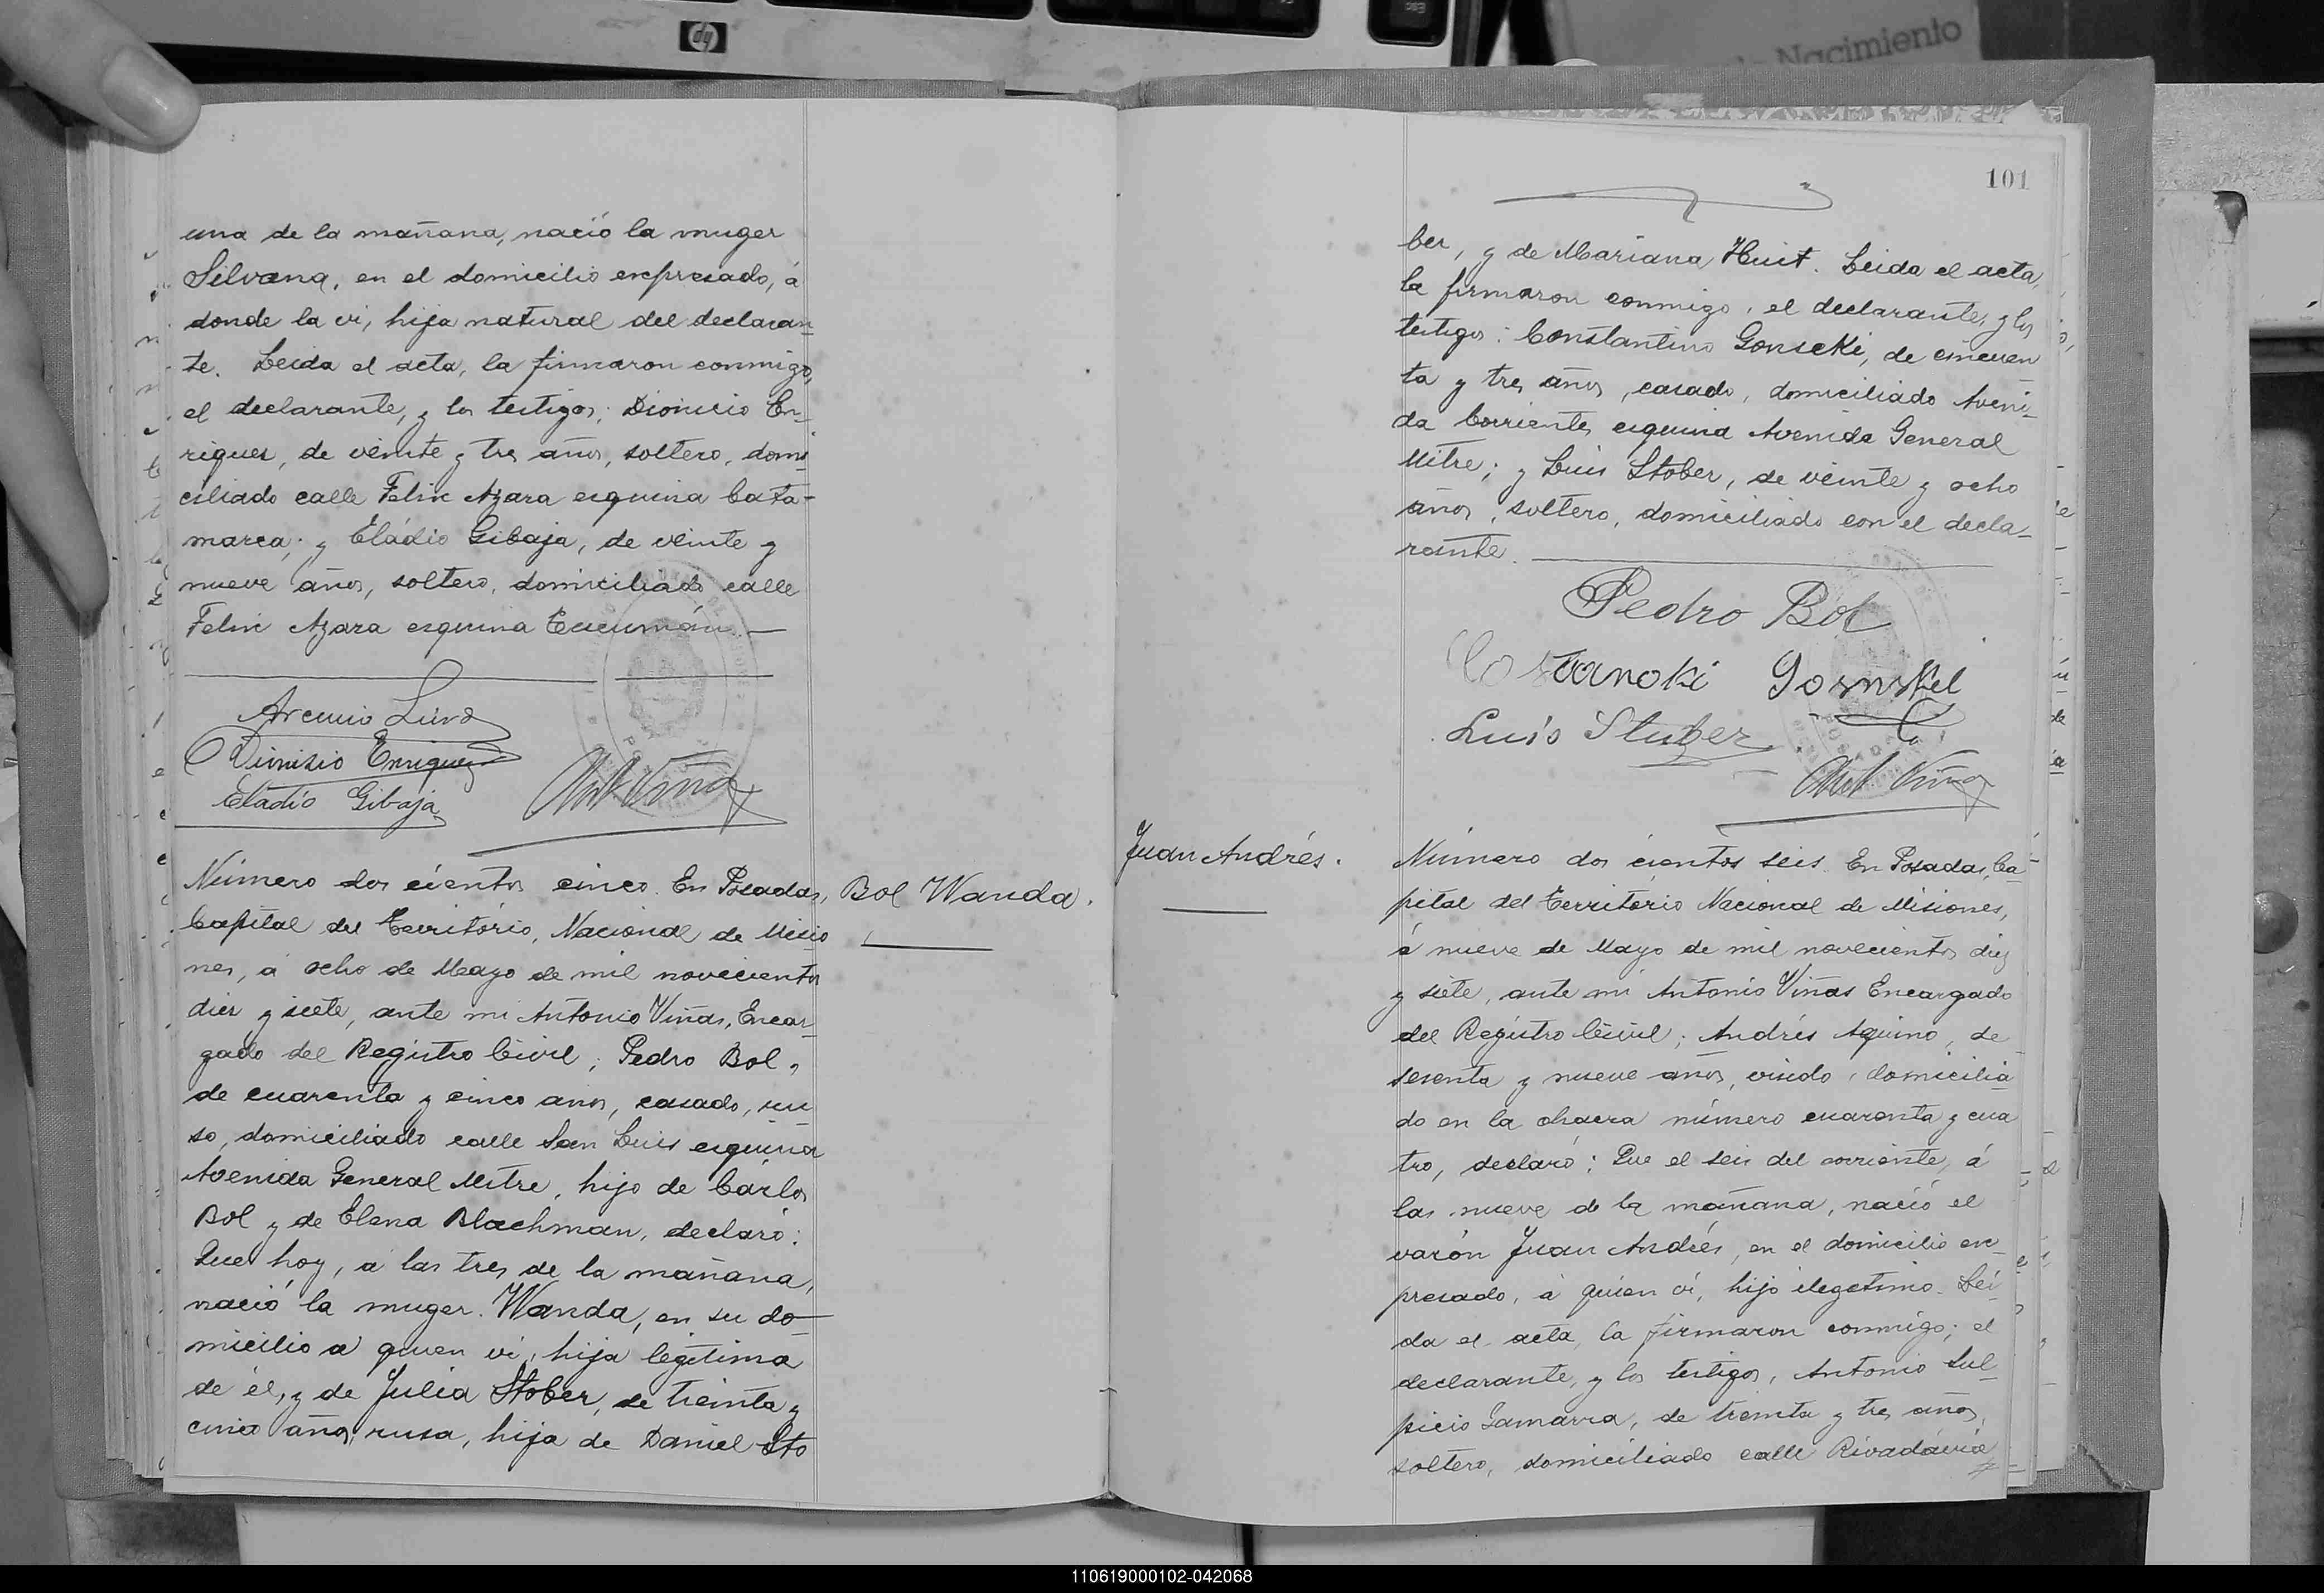 hp
de Nacimiento
una de la mañana, nació la muger
Silvana, en el domicilio expresado, á
donde la vi, hija natural del declaran-
te. Leida el acta, la firmaron conmigo,
el declarante, y los testigos: Dionicio En-
riques, de veinte y tres años, soltero, domi-
ciliado calle Felix Azara esquina Cata-
marca; y Eládio Gibaja, de veinte y
nueve años, soltero, domiciliado calle
Felix Azara esquina Tucumán.—
Arcenio
Dionisio Enriquez
Eladio Gibaja
Ant Viñas
Número dos cientos cinco. En Posadas,
Capital del Território, Nacional de Misio
nes, á ocho de Mayo de mil novecientos
diez y siete, ante mi Antonio Viñas, Encar-
gado del Registro Civil; Pedro Bol,
de cuarenta y cinco años, casado, ru-
so, domiciliado calle San Luis esquina
Avenida General Mitre, hijo de Cárlos
Bol y de Elena Blachman, declaró:
Que hoy, á las tres de la mañana,
nació la muger Wanda, en su do-
micilio a quien vi, hija legítima
de él, y de Julia Stober, de treinta y
cinco años, rusa, hija de Daniel Sto
Bol Wanda.
101
ber, y de Mariana Huit. Leida el acta,
la firmaron conmigo, el declarante, y los
testigos: Constantino Gonseki, de cincuen
ta y tres años, casado, domiciliado Aveni-
da Corrientes esquina Avenida General
Mitre; y Luis Stober, de veinte y ocho
años, soltero, domiciliado con el decla-
rante.
Pedro Bol
Luis Stuber
Ant Viñas
Juan Andrés.
Número dos cientos seis. En Posadas, Ca-
pital del Território Nacional de Misiones,
á nueve de Mayo de mil novecientos diez
y siete, ante mi Antonio Viñas Encargado
del Registro Civil; Andrés Aquino, de
sesenta y nueve años, viudo, domicilia
do en la chacra número cuarenta y cua
tro, declaró: Que el seis del corriente, á
las nueve de la mañana, nació el
varón Juan Andrés, en el domicilio ex-
presado, á quien vi, hijo ilegetimo. Lei-
da el acta, la firmaron conmigo; el
declarante, y los testigos, Antonio Sul-
picio Gamarra, de treinta y tres años,
soltero, domiciliado calle Rivadávia
110619000102-042068